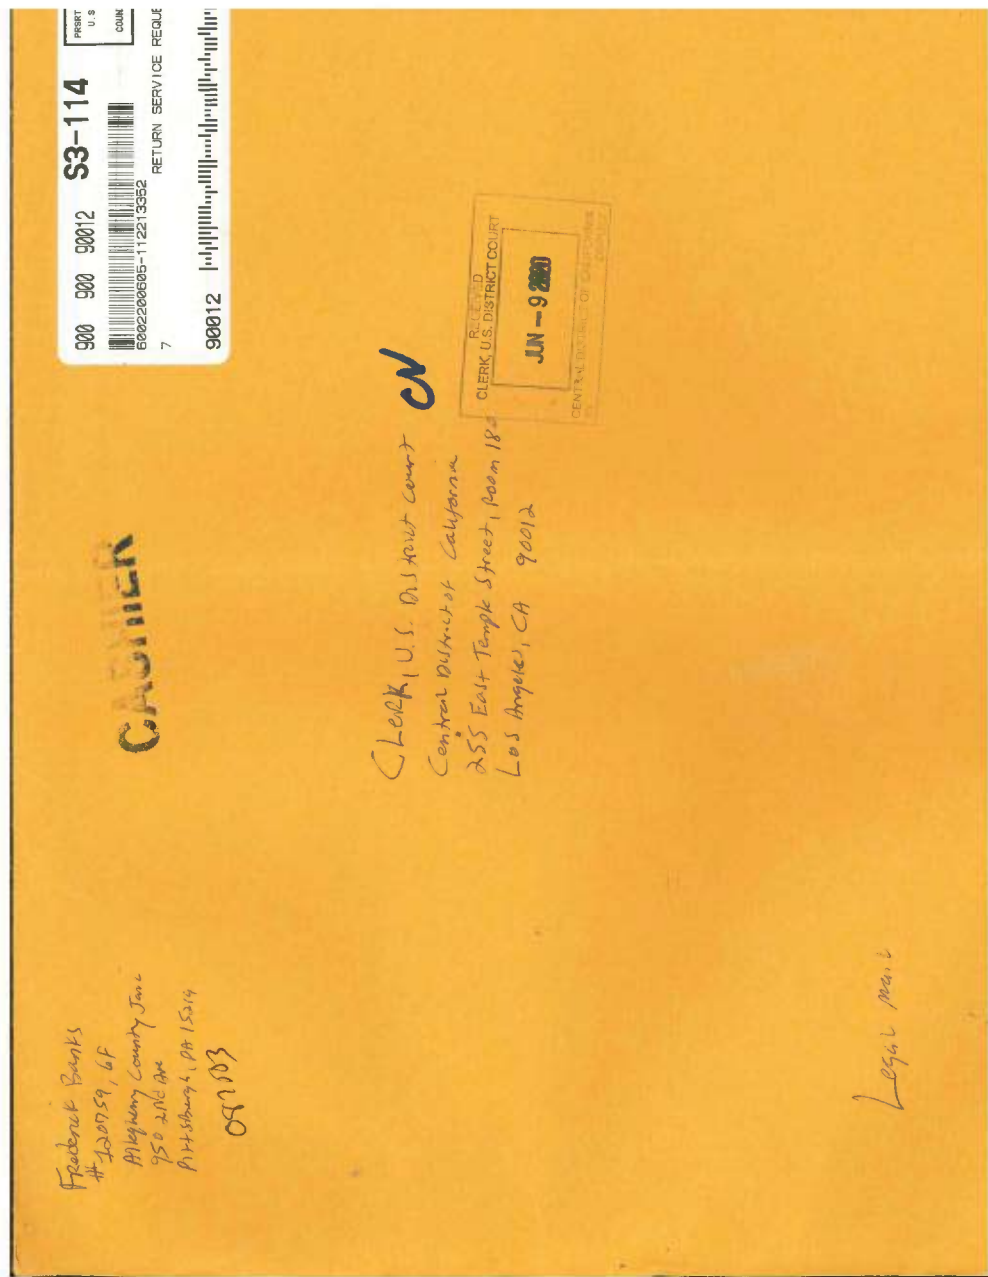 Frederick Banks
#120759, 6F
Allegheny County Jail
950 2nd Ave
Pittsburgh, PA 15219
CASHIER
900 900 90012 S3-114
PRSRT
U.S
COUN
6002200605-112213352
7 RETURN SERVICE REQUE
90012
CLERK, U.S. District Court
Central District of California
255 East Temple Street, Room 180
Los Angeles, CA 90012
CN
RECEIVED
CLERK, U.S. DISTRICT COURT
JUN - 9 2020
CENTRAL DISTRICT OF CALIFORNIA
DEPUTY
Legal Mail